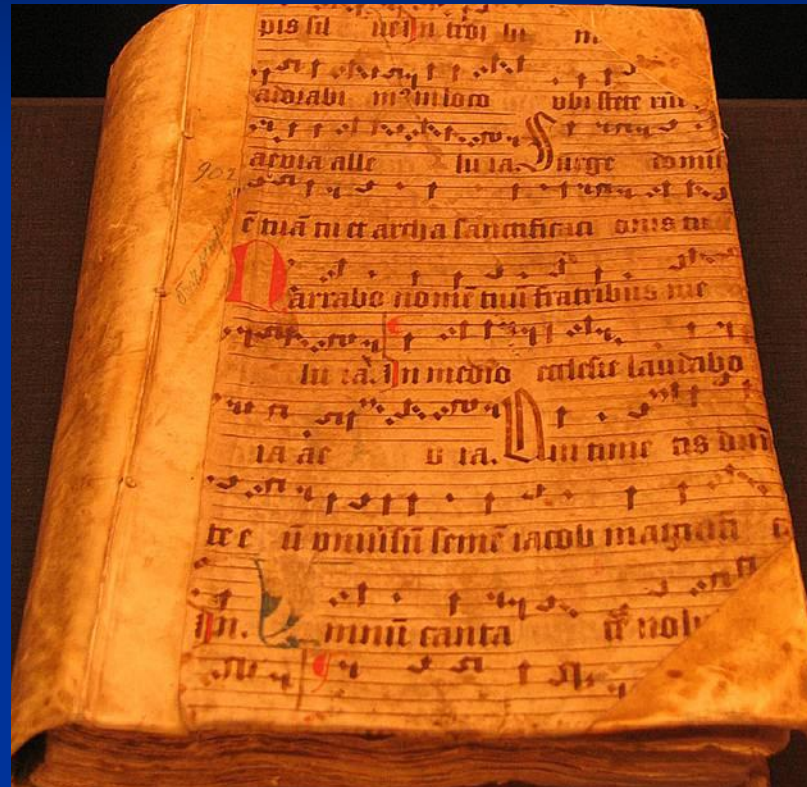 pis sil
adorabi mꝰ in loco ubi stete rūt
aevia alle lu ia. Surge domine
ē tuā tu et archa sanctificati onis tu
Narrabo nomē tuū fratribus me
lu ia. In medio ecclesie laudabo
ia ae v ia. Qui time tis dn̄m
ū omnisū semē iacob magnifi
mnū canta nobi
902